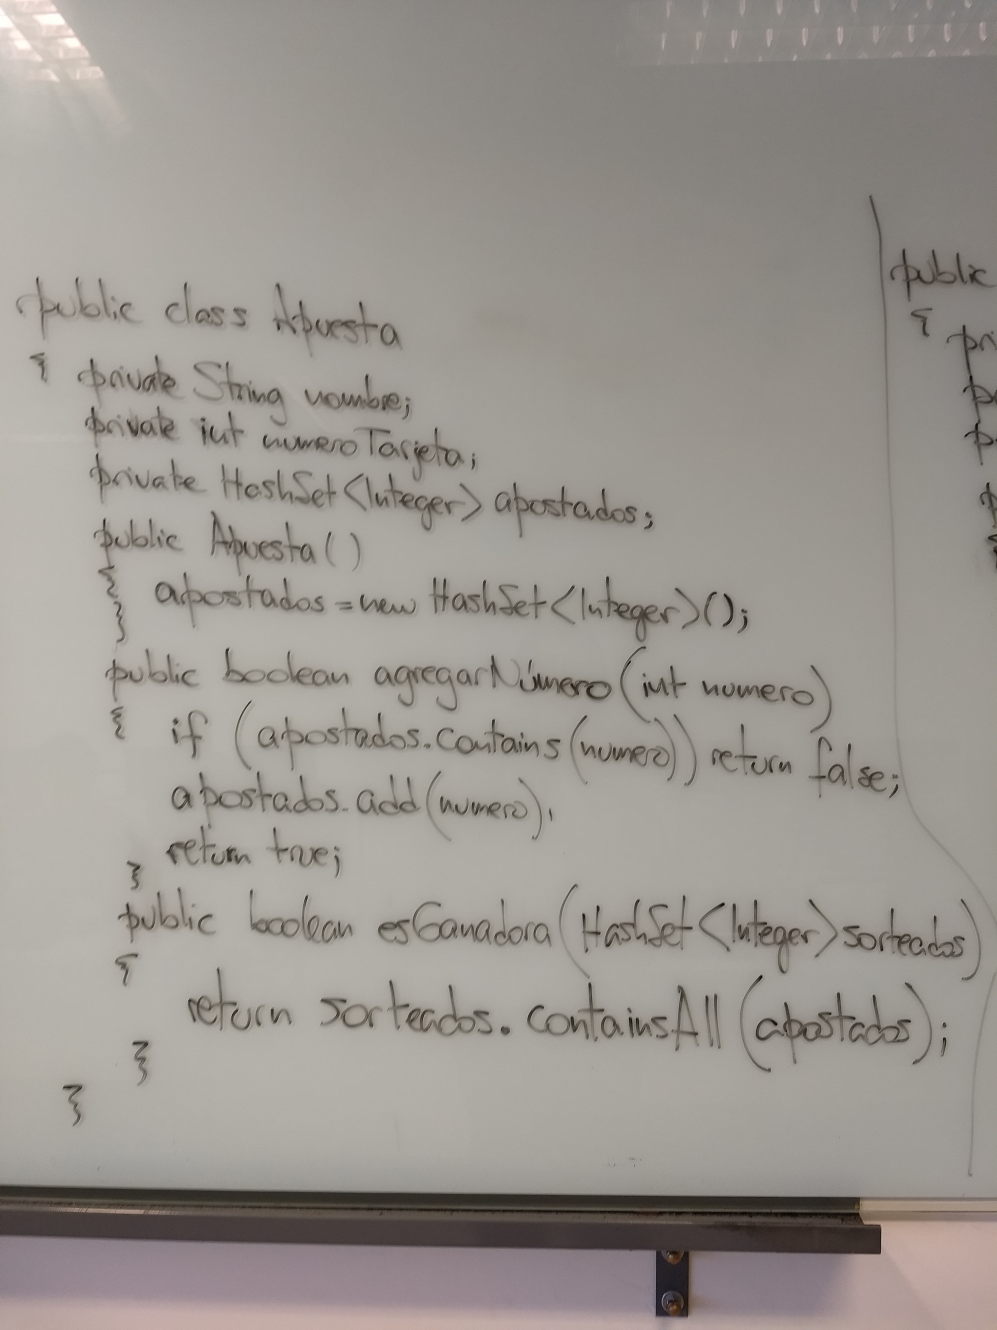 public class Apuesta
{ private String nombre;
private int numeroTarjeta;
private HashSet<Integer> apostados;
public Apuesta()
{ apostados = new HashSet<Integer>();
}
public boolean agregarNúmero(int numero)
{ if (apostados.contains(numero)) return false;
apostados.add(numero);
return true;
}
public boolean esGanadora(HashSet<Integer> sorteados)
{
return sorteados.containsAll(apostados);
}
}
public
{
pri
p
p
p
{